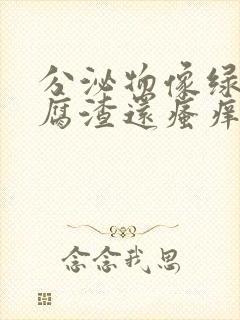 分泌物像绿
腐渣還瘙痒
念念我思